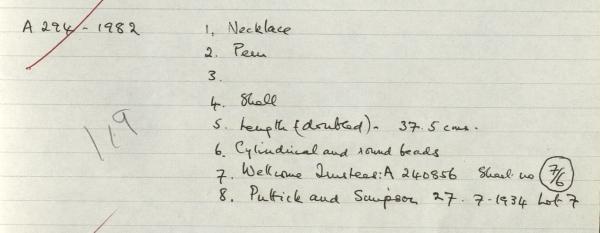 A 294 - 1982
1. Necklace
2. Peru
3.
4. Shell
5. Length (doubled) - 37.5 cms.
6. Cylindrical and round beads
7. Wellcome Trustees: A 240856 Sheet no 7/6
8. Puttick and Simpson 27. 7. 1934 Lot 7
119